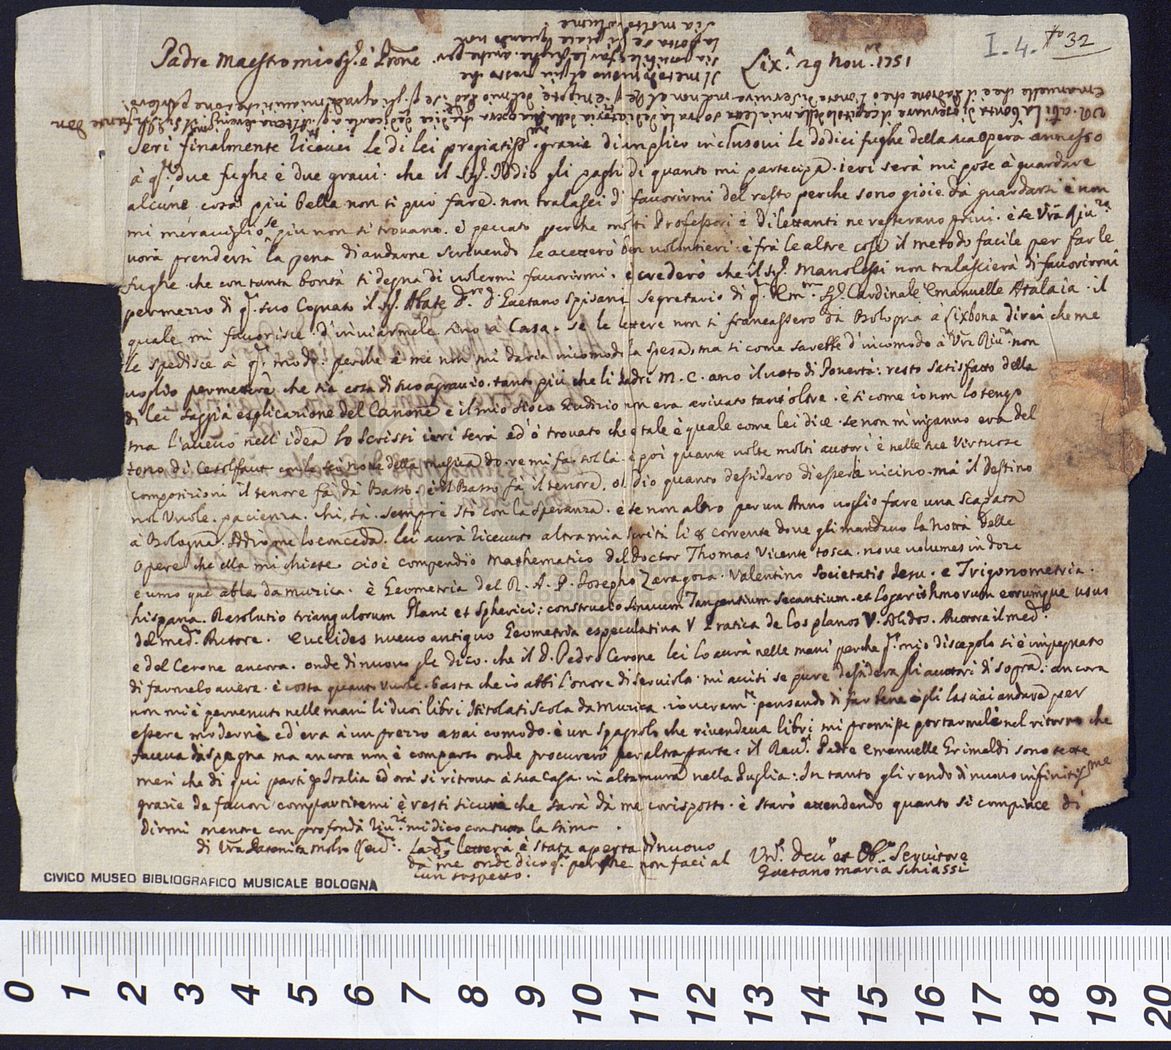 I. 4. 32
Padre Maestro mio Sig. e Prone
Lixa. 29 Nov. 1751
Ieri finalmente le di lei pregiatiss. grazie di un plico inclusovi le dodici fughe della sua opera annesso
à q. due fughe è due gravi. che il Sig. Iddio gli paghi di quanto mi partecipa. ieri serà mi pose à guardare
alcune cosa più bella non si può fare. non tralasci di favorirmi del resto perche sono gioie da guardarsi è non
mi meraviglio se più non si trovano. è peccato perche molti Professori è dilettanti ne resterano privi. è se Vra Riv.
vorà prendersi la pena di andarne scrivendo le accetterò ben volontieri. è frà le altre cose il metodo facile per far le
fughe che con tanta bontà si degna di volermi favorirmi. e crederò che il Sig. Manolessi non tralascierà di favorirmi
permezzo di q. suo Cognato il Sig. Abate D. Gaetano Spisani segretario di q. Em. Sig. Cardinale Emanuelle Atalaia. il
quale mi favorisce d'inviarmele sino à Casa. se le lettere non si francassero da Bologna a Lixbona direi che me
le spedisce à q. modo: perche à me non mi daria incomodo la spesa, ma si come sarebbe d'incomodo a Vra Riv. non
voglio permettere che sia cosa di suo agravio. tanto più che li Padri M. C. ano il voto di Povertà: resto satisfatto della
di lei saggia esplicazione del Canone è il mio stoco studio non era arivato tant'oltre. è si come io non lo tengo
ma l'avevo nell'idea lo scrissi ieri serà ed ò trovato che tale è quale come lei dice. se non m'inganno era del
tono di Cesolfaut con le sei note della musica do. re mi fa sol la è poi quante volte molti autori è nelle sue Virtuose
composizioni il tenore fà da Basso è il Basso fà il tenore. oh dio quanto desidero di essere vicino. mà il destino
nol vuole. pacienza. chi sà. sempre stò con la speranza. è se non altro per un Anno voglio fare una scapata
a Bologna. Iddio me lo conceda. lei avrà ricevuto altra mia scritta li 8 corrente dove gli mandavo la notta delle
opere che ella mi chiete cioè compendio Mathematico del doctor Thomas Vicente tosca. nove volumes in doze
e umo que abla da muzica. è Geometria del R. A. P. Josepho Zaragoza. Valentino Societatis Jesu. e Trigonometria.
hispana. Resolutio triangulorum Plani et Spherici: constructio sinuum Tangentium Secantium. et Logarithmorum eorumque usus
del med. Autore. Euclides nuevo antiguo Geometria especulatina y Pratica de los planos y solidos. Autore il med.
è del Cerone ancora. onde di nuovo gle dico. che il D. Pedro Cerone lei lo avrà nelle mani perche q. mio discepolo si è impegnato
di farmelo avere. è costa quanto vuole. basta che io abbi l'onore di servirla. mi avisi se pure desidera gli auttori di sopra. ancora
non mi è pervenuto nelle mani li duoi libri titolati scola da muzica. io veram. pensando di far bene gli lasciai andare per
essere moderni ed era à un prezzo assai comodo. è un spagnolo che rivendeva libri mi promise portarmele nel ritorno che
faceva da Spagna ma ancora non è comparso onde procurerò per altra parte: il Rev. Padre Emanuelle Grimaldi sono sette
mesi che di qui parti p Italia ed ora si ritrova à sua casa in altamura nella Puglia: In tanto gli rendo di nuovo infinitissme
grazie de favori compartitemi è resti sicuro che sarà dà me corisposto. è starò attendendo quanto si compiace di
dirmi mentre con profonda riv. mi dico con tutta la stima.
di Vra Paternita Molto Rev.
La da lettera è stata aperta di nuovo
da me onde dico q. perche non faci al
cun sospetto.
Vro. Dev. et Ob. Servitore
Gaetano Maria Schiassi
il metodo
la posta se gli piace quando non
sia molto volume
CIVICO MUSEO BIBLIOGRAFICO MUSICALE BOLOGNA
museo internazionale
e biblioteca della musica
di bologna
0 1 2 3 4 5 6 7 8 9 10 11 12 13 14 15 16 17 18 19 20